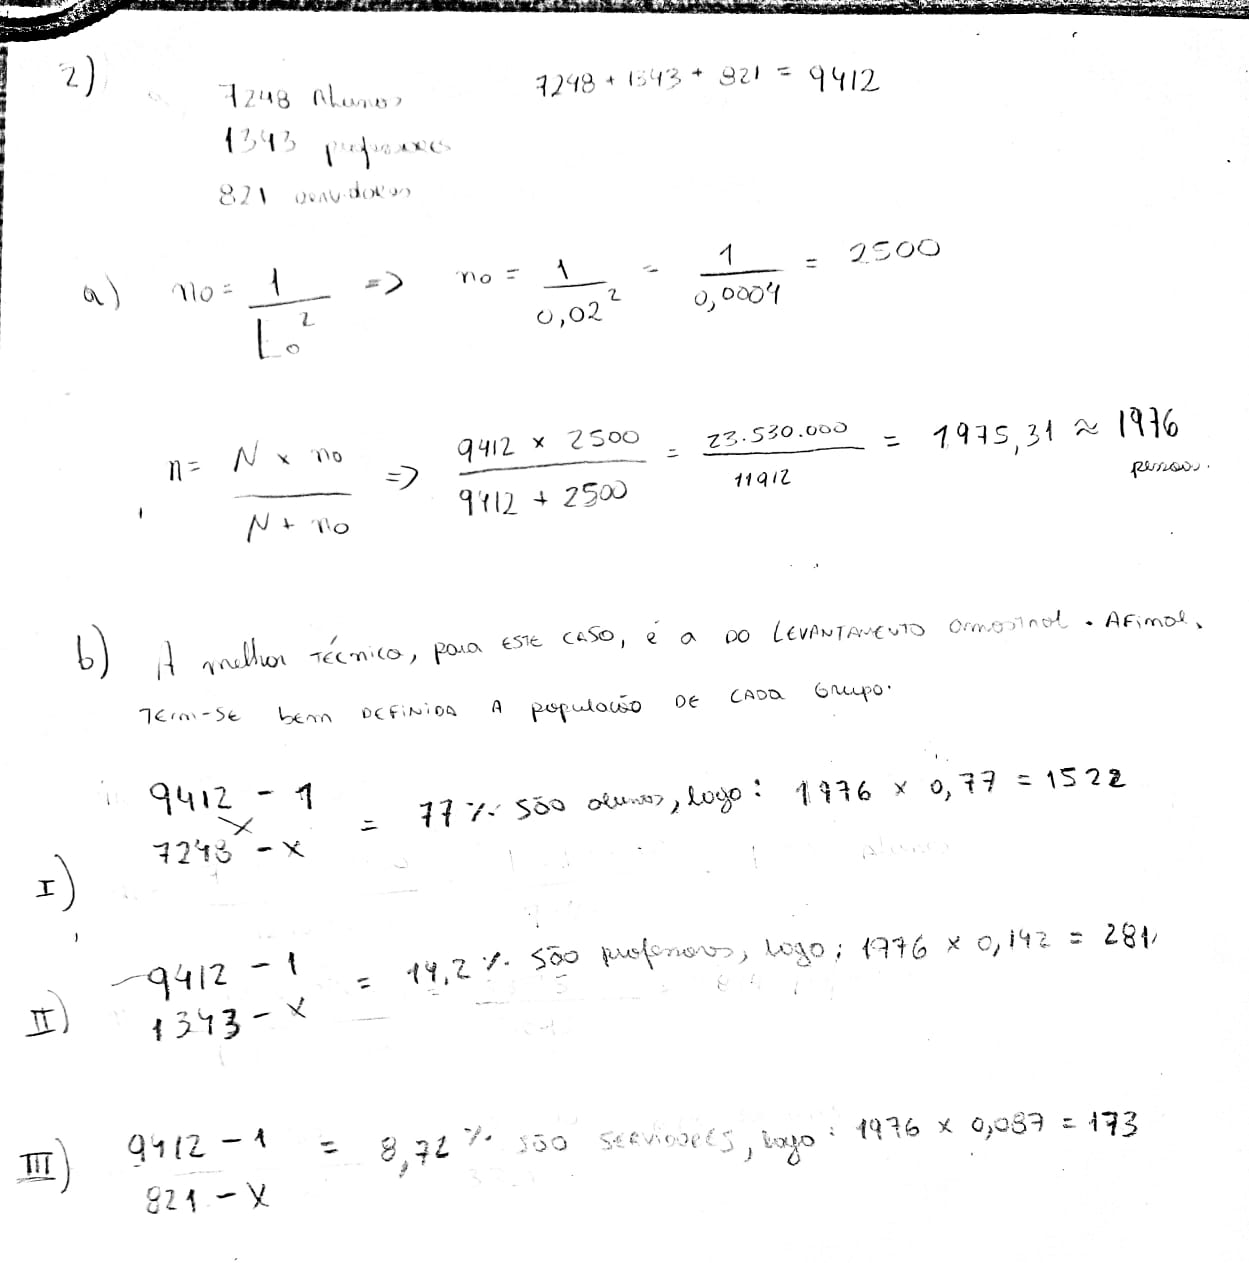 2)
7248 Alunos 7248 + 1343 + 821 = 9412
1343 professores
821 servidores
a) no = 1 / Eo² => no = 1 / 0,02² = 1 / 0,0004 = 2500
n = N x no / N + no => 9412 x 2500 / 9412 + 2500 = 23.530.000 / 11912 = 1975,31 ≈ 1976
pessoas.
b) A melhor técnica, para ESTE CASO, é a DO LEVANTAMENTO amostral. AFinal,
Tem-SE bem DEFINIDA A população DE CADA Grupo.
I) 9412 - 1
7248 - x = 77 % são alunos, logo: 1976 x 0,77 = 1522
alunos
II) 9412 - 1
1343 - x = 14,2 % são professores, logo; 1976 x 0,142 = 281
III) 9412 - 1
821 - x = 8,72 % são SERVIDORES, logo: 1976 x 0,087 = 173